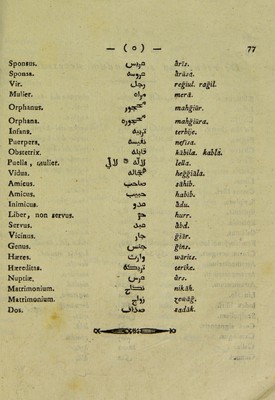 — ( o ) — 77
Sponsus. عريس âris.
Sponsa. عروسة ârúsa.
Vir. رجل reģiul. raģil.
Mulier. مراه merà.
Orphanus. مهجور mahģiúr.
Orphana. مهجوره mahģiúra.
Infans. تربية terbije.
Puerpera. نفيسة nefisa.
Obstetrix. قابلة kàbila. kablà.
Puella, mulier. لالّه lella.
Vidua. هجّاله heģģiàla.
Amicus. صاحب sàhib.
Amicus. حبيب habib.
Inimicus. عدو âdu.
Liber, non servus. حر hurr.
Servus. عبد âbd.
Vicinus. جار ģiàr.
Genus. جنس ģins.
Hæres. وارث wàrits.
Hæreditas. تركة terike.
Nuptiæ. عرس ârs.
Matrimonium. نكاح nikàh.
Matrimonium. زواج zewàģ.
Dos. صداق sadàk.